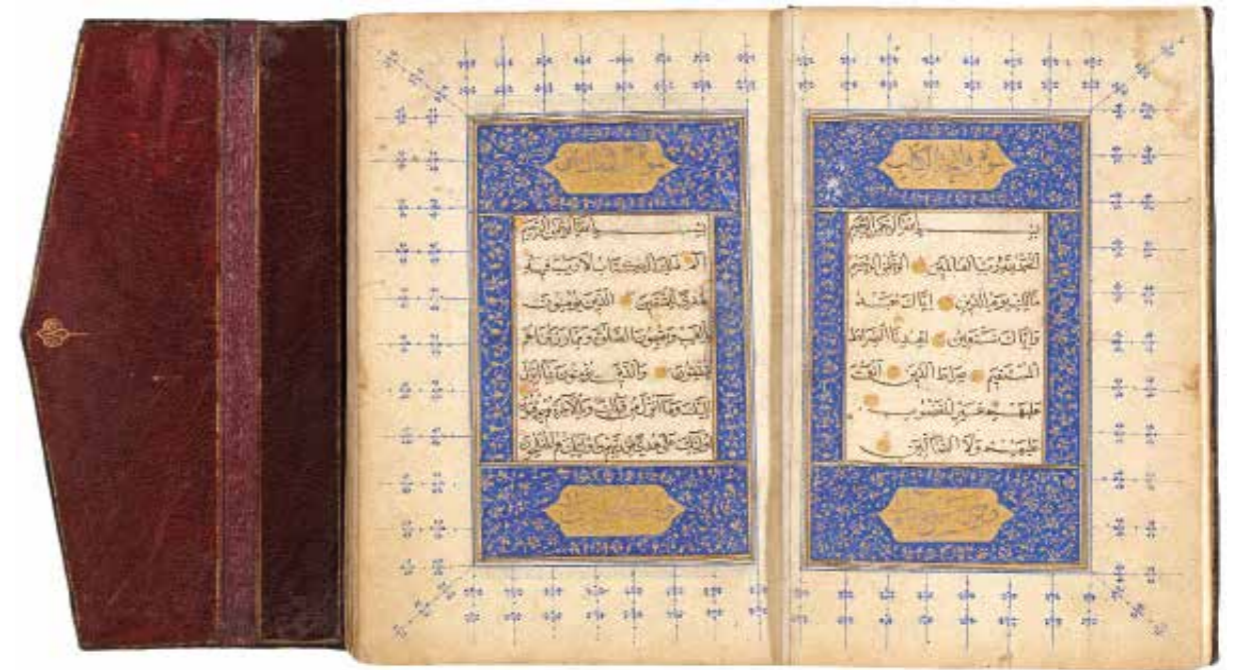 سورة فاتحة الكتاب
بسم الله الرحمن الرحيم
الحمد لله رب العالمين الرحمن الرحيم
مالك يوم الدين إياك نعبد
وإياك نستعين اهدنا الصراط
المستقيم صراط الذين أنعمت
عليهم غير المغضوب
عليهم ولا الضالين
بسم الله الرحمن الرحيم
الم ذلك الكتاب لا ريب فيه
هدى للمتقين الذين يؤمنون
بالغيب ويقيمون الصلوة ومما رزقناهم
ينفقون والذين يؤمنون بما أنزل
إليك وما أنزل من قبلك وبالآخرة هم يوقنون
أولئك على هدى من ربهم وأولئك هم المفلحون